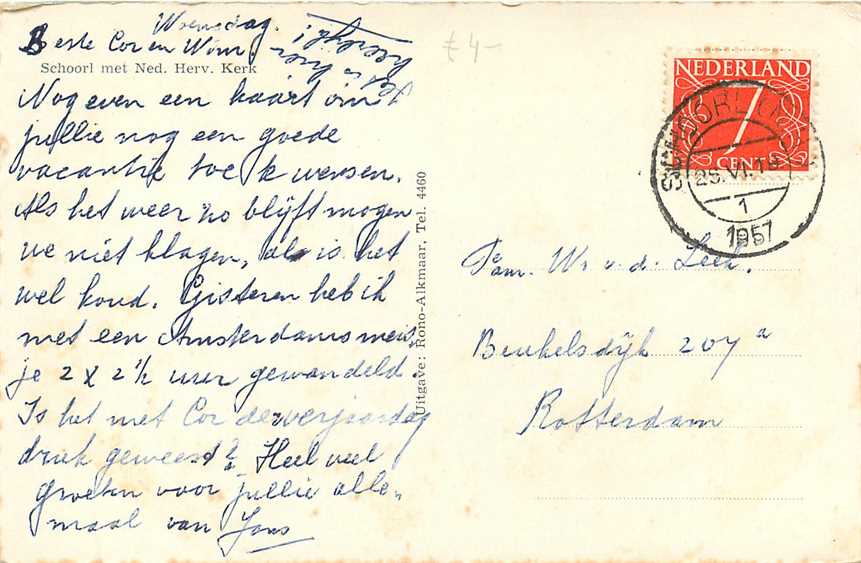 Woensdag.
Beste Cor en Wim.
Het is hier
heerlijk!
Schoorl met Ned. Herv. Kerk
Nog even een kaart om
jullie nog een goede
vacantie toe te wensen.
Als het weer zo blijft mogen
we niet klagen, al is het
wel koud. Gisteren heb ik
met een Amsterdams meis
je 2 x 2½ uur gewandeld.
Is het met Cor de verjaardag
druk geweest? Heel veel
groeten voor jullie alle„
maal van Jans
Uitgave: Rono-Alkmaar, Tel. 4460
£ 4-
NEDERLAND
7
CENT
SCHOORL
25.VI.19
1
1957
Fam. W. v.d. Leek.
Beukelsdijk 207a
Rotterdam